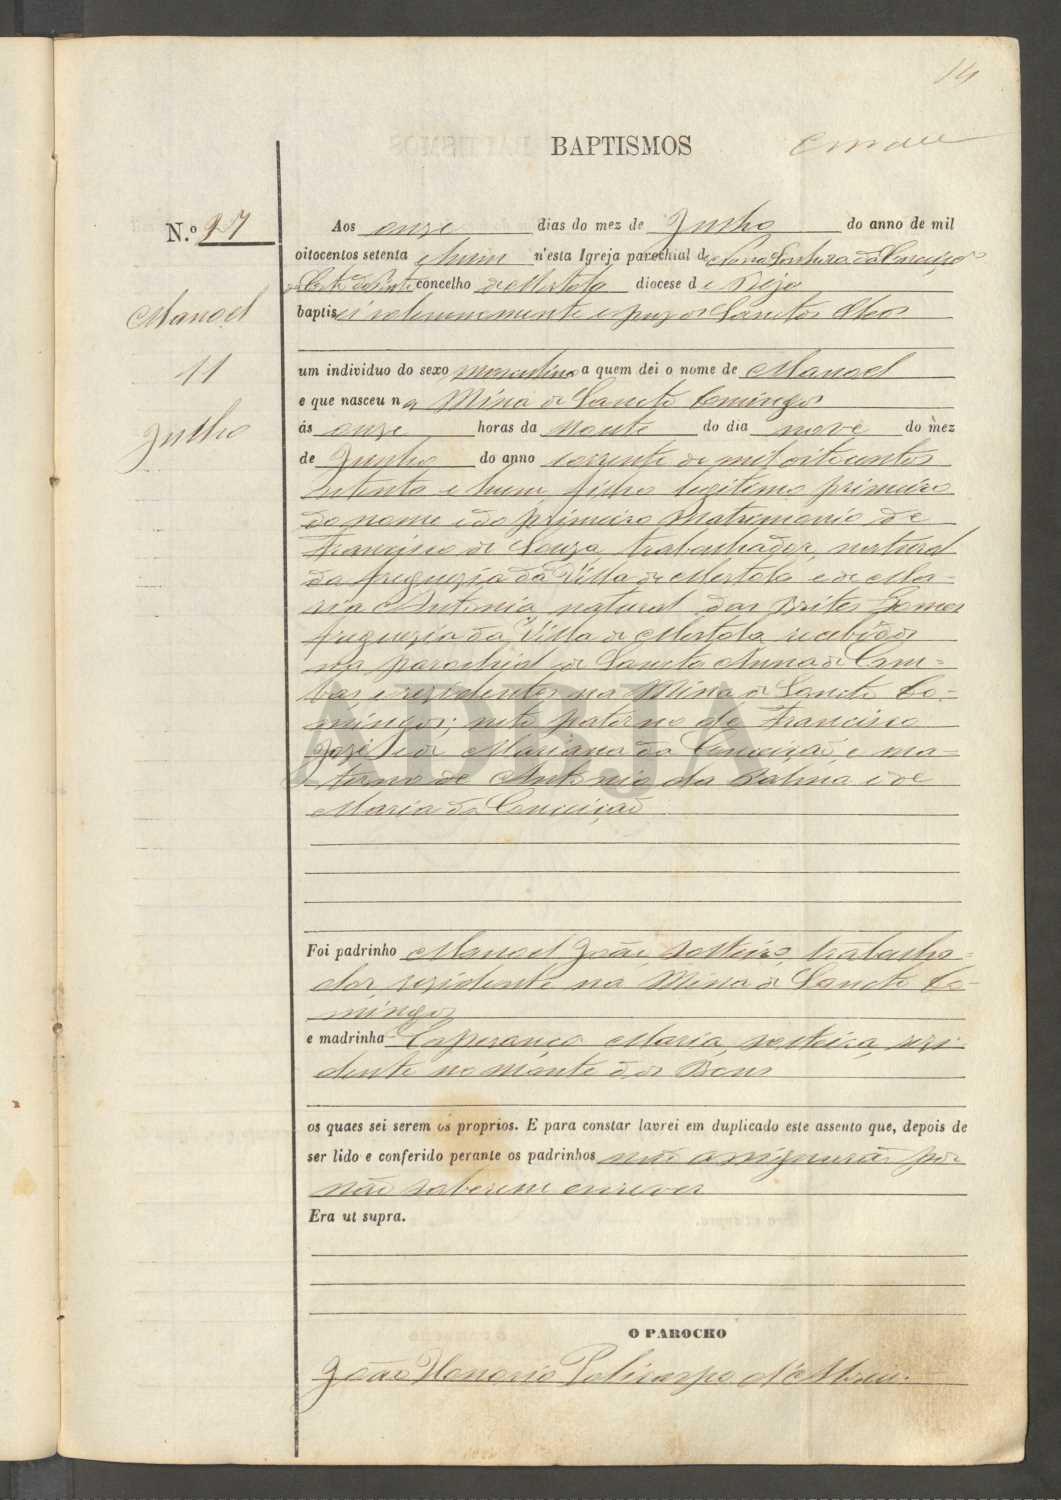 14
BAPTISMOS
N.º 27
Manoel
11
Junho
Aos onze dias do mez de Junho do anno de mil
oitocentos setenta e hum n'esta Igreja parochial de Nossa Senhora da Conceição
concelho de Mertola diocese de Beja
baptisei solemnemente e puz os Sanctos Oleos
um individuo do sexo masculino a quem dei o nome de Manoel
e que nasceu na Mina de Sancto Domingos
ás onze horas da noute do dia nove do mez
de Junho do anno corrente de mil oitocentos
setenta e hum, filho legitimo primeiro
do nome e do primeiro matrimonio de
Francisco de Souza, trabalhador, natural
da freguezia da Villa de Mertola e de Ma-
ria Antonia, natural dos Brites Gomes
freguezia da Villa de Mertola, recebidos
na parochial de Sancta Anna de Cam-
bas e rezidentes na Mina de Sancto Do-
mingos; neto paterno de Francisco
José e de Mariana da Conceição e ma-
terno de Antonio da Palma e de
Maria da Conceição
ADBJA
Foi padrinho Manoel João, solteiro, trabalha-
dor, rezidente na Mina de Sancto Do-
mingos
e madrinha Esperança Maria, solteira, rezi-
dente no Monte dos Bens
os quaes sei serem os proprios. E para constar lavrei em duplicado este assento que, depois de
ser lido e conferido perante os padrinhos não assignarão por
não saberem escrever
Era ut supra.
O PAROCHO
João Honorio Policarpo d'Abreu.